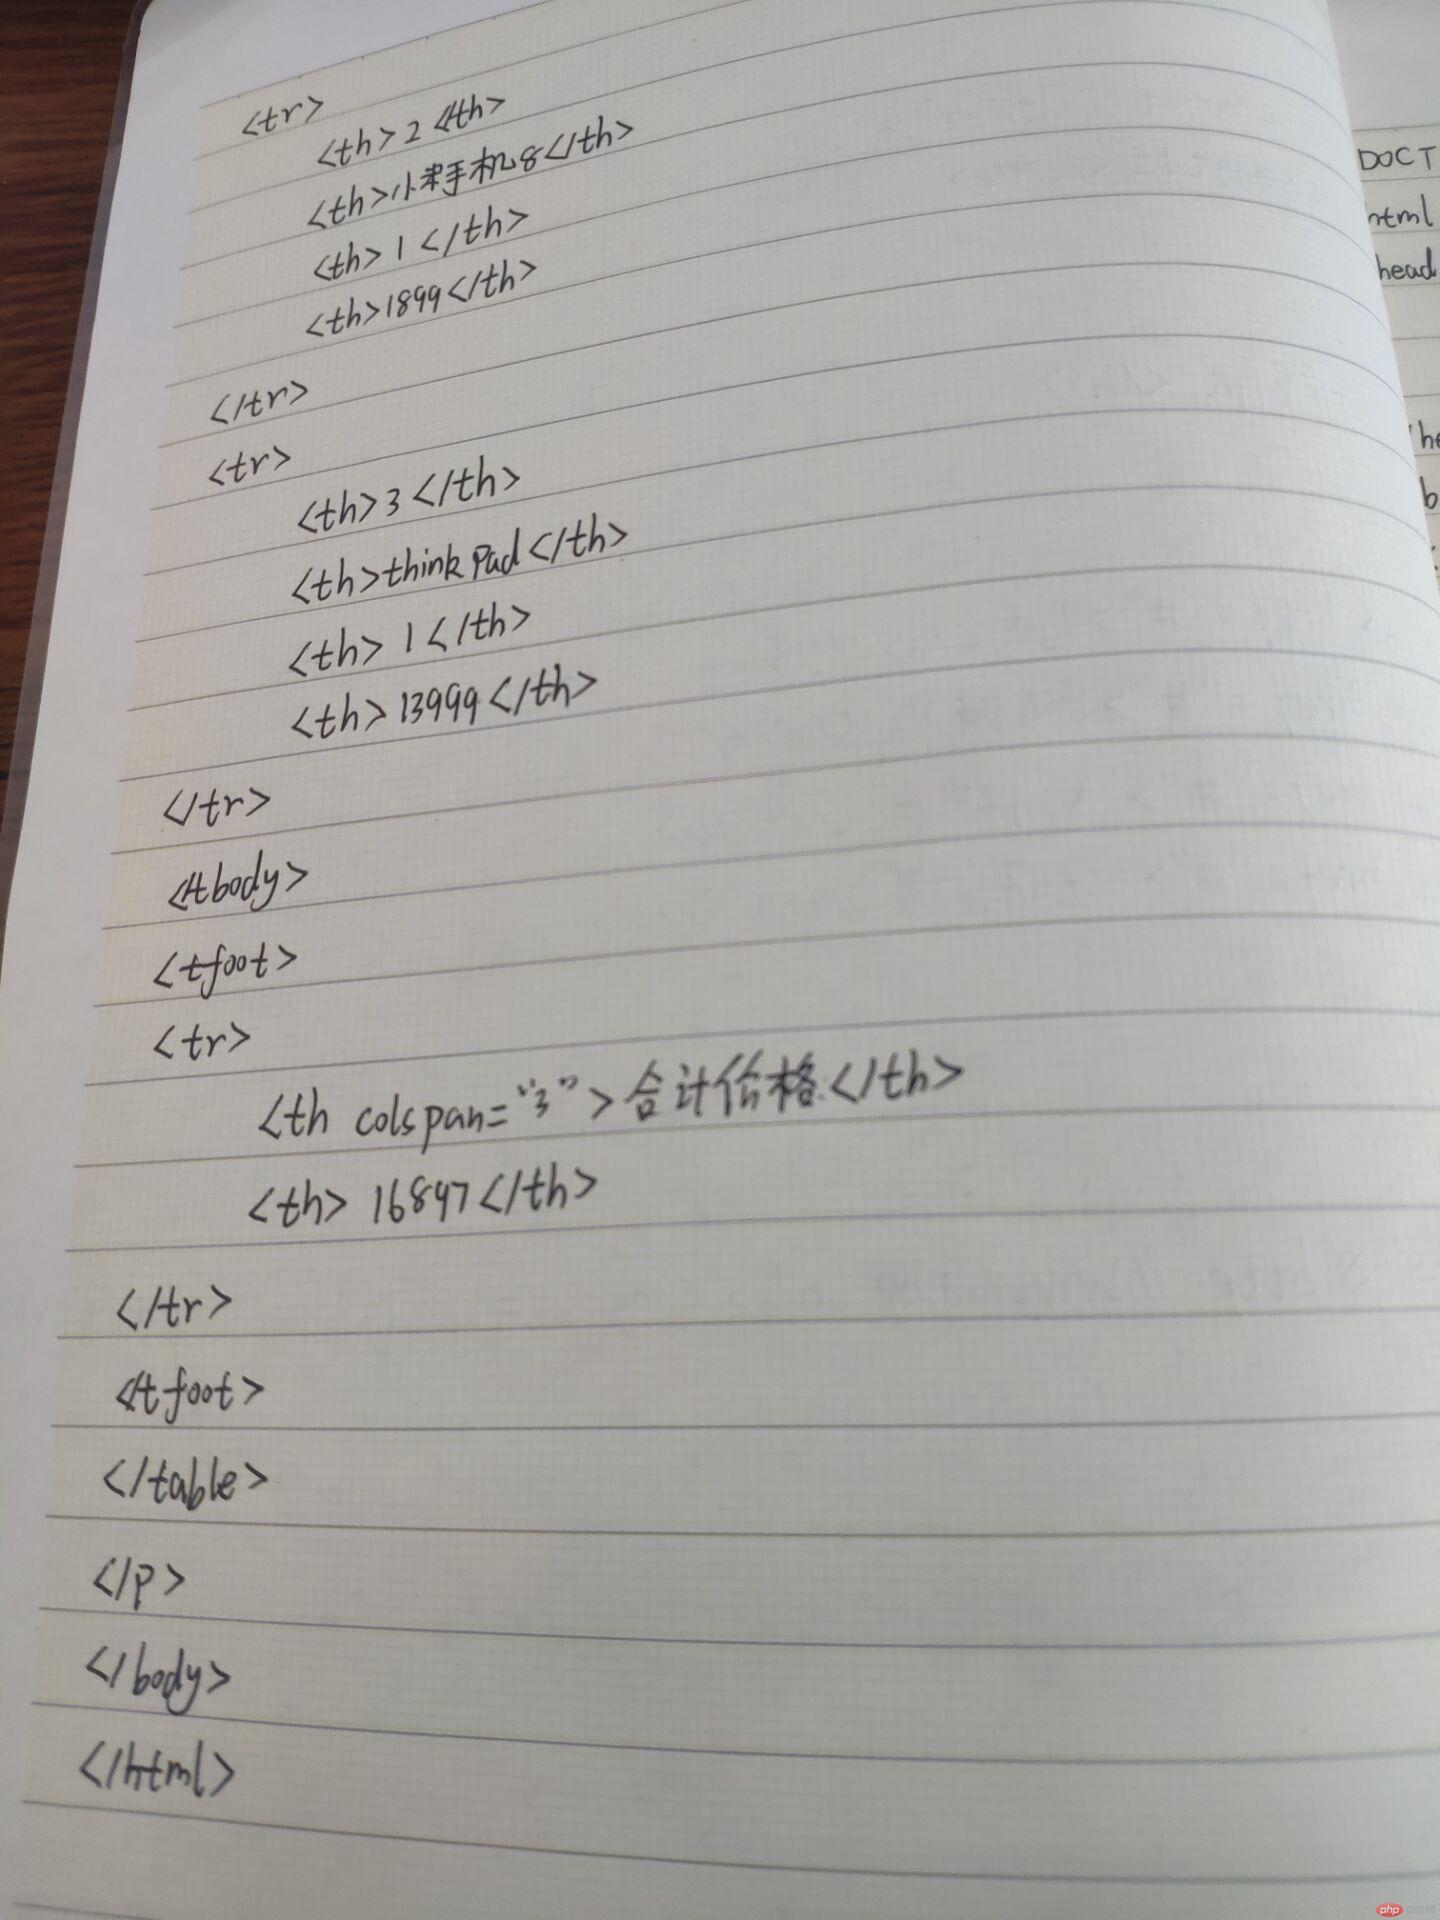 <tr>
<th>2</th>
<th>小米手机8</th>
<th>1</th>
<th>1899</th>
</tr>
<tr>
<th>3</th>
<th>thinkpad</th>
<th>1</th>
<th>13999</th>
</tr>
</tbody>
<tfoot>
<tr>
<th colspan="3">合计价格</th>
<th>16897</th>
</tr>
</tfoot>
</table>
</p>
</body>
</html>
DOCT
html
head
php